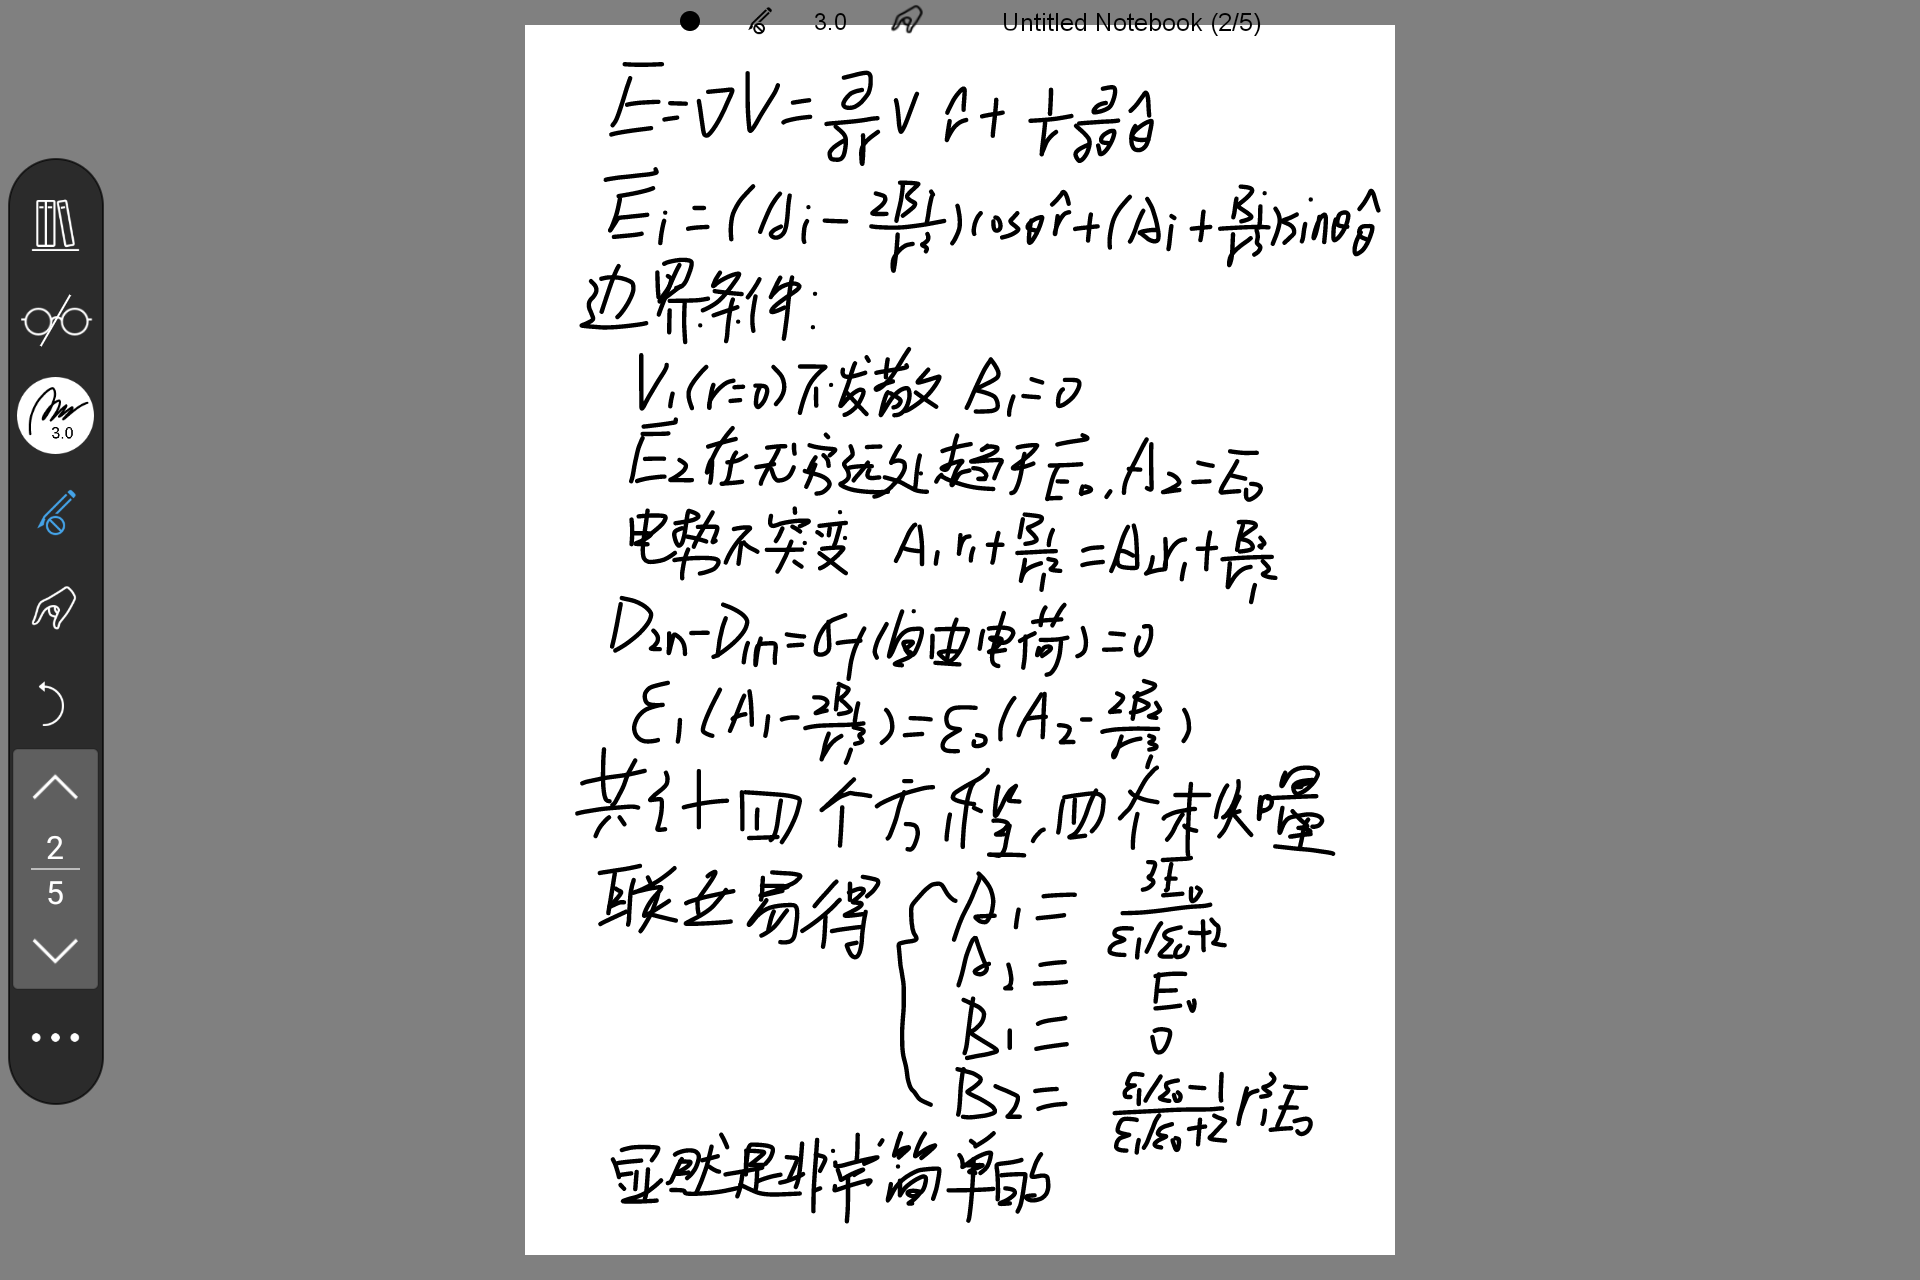 3.0 Untitled Notebook (2/5)
E̅=∇V=∂/∂r V r̂+1/r ∂/∂θ θ̂
E̅i=(Ai-2Bi/r³)cosθ r̂+(Ai+Bi/r³)sinθ θ̂
边界条件:
V₁(r=0)不发散 B₁=0
E̅₂在无穷远处趋于E̅₀,A₂=E₀
电势不突变 A₁r₁+B₁/r₁²=A₂r₁+B₂/r₁²
D₂n-D₁n=σf(自由电荷)=0
ε₁(A₁-2B₁/r₁³)=ε₀(A₂-2B₂/r₁³)
共计十四个方程,四个未知量
联立易得 { A₁= 3E₀/(ε₁/ε₀+2)
A₂= E₀
B₁= 0
B₂= (ε₁/ε₀-1)/(ε₁/ε₀+2) r₁³E₀
显然是非常简单的
3.0
2
5